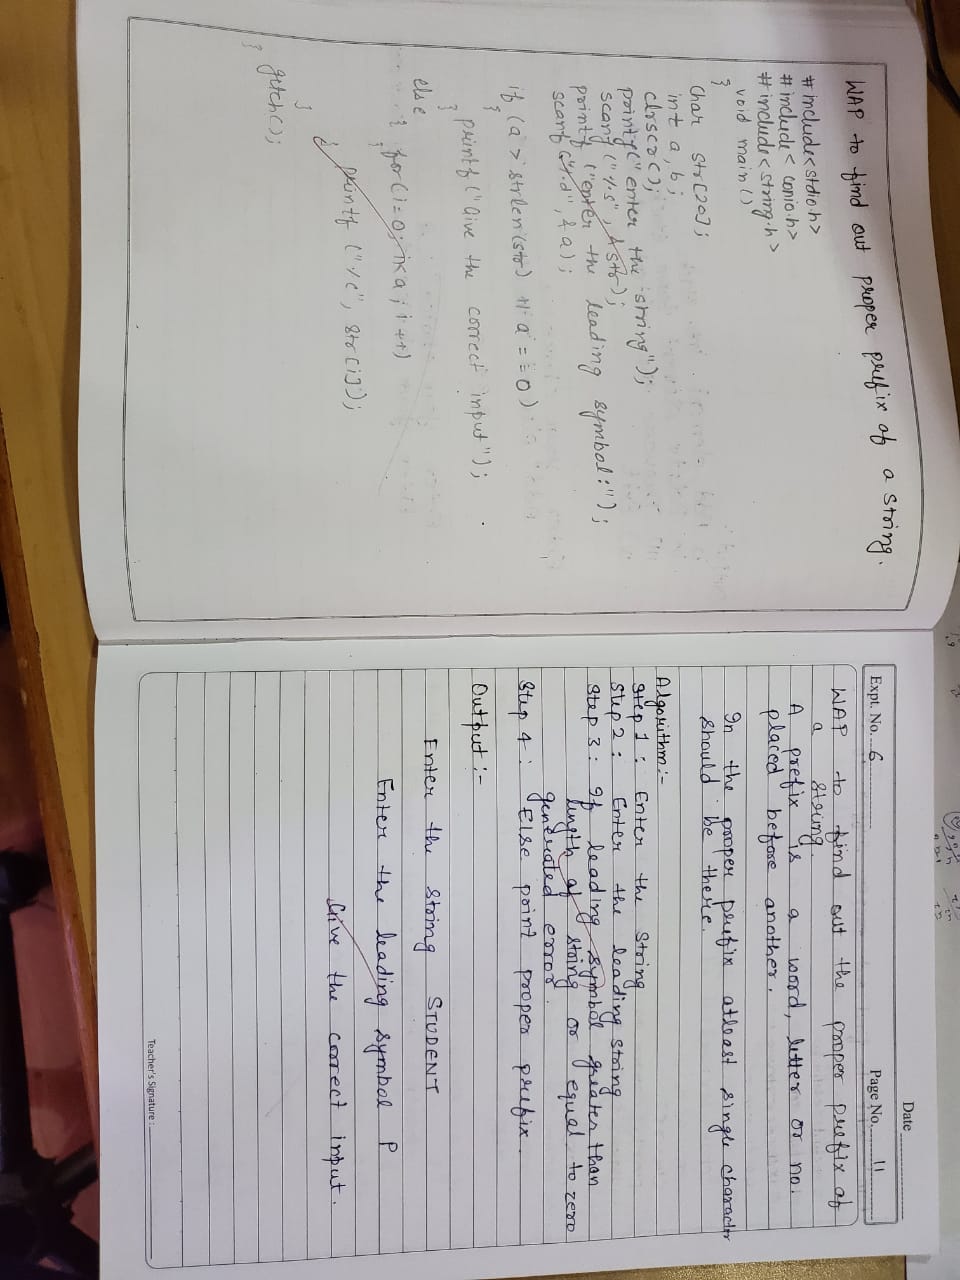 WAP to find out proper prefix of a string.
#include<stdio.h>
#include< conio.h>
#include<string.h>
void main()
}
Char str[20];
int a,b;
clrscr();
printf("enter the string");
scanf ("%s", &str);
printf ("enter the leading symbol:");
scanf ("%d", & a);
if (a > strlen(str) || a == 0)
{
printf("Give the correct input");
}
else
{
for(i=0; i<a; i++)
{
printf ("%c", str[i]);
}
}
getch();
}
Date
Expt. No. 6
Page No. 11
WAP to find out the proper prefix of
a string.
A prefix is a word, letter or no.
placed before another.
In the proper prefix atleast single character
should be there.
Algorithm:-
Step 1: Enter the string
Step 2: Enter the leading string
Step 3: If leading symbol greater than
length of string or equal to zero
generated error.
Step 4: Else print proper prefix.
Output:-
Enter the string STUDENT
Enter the leading symbol P
Give the correct input.
Teacher's Signature :